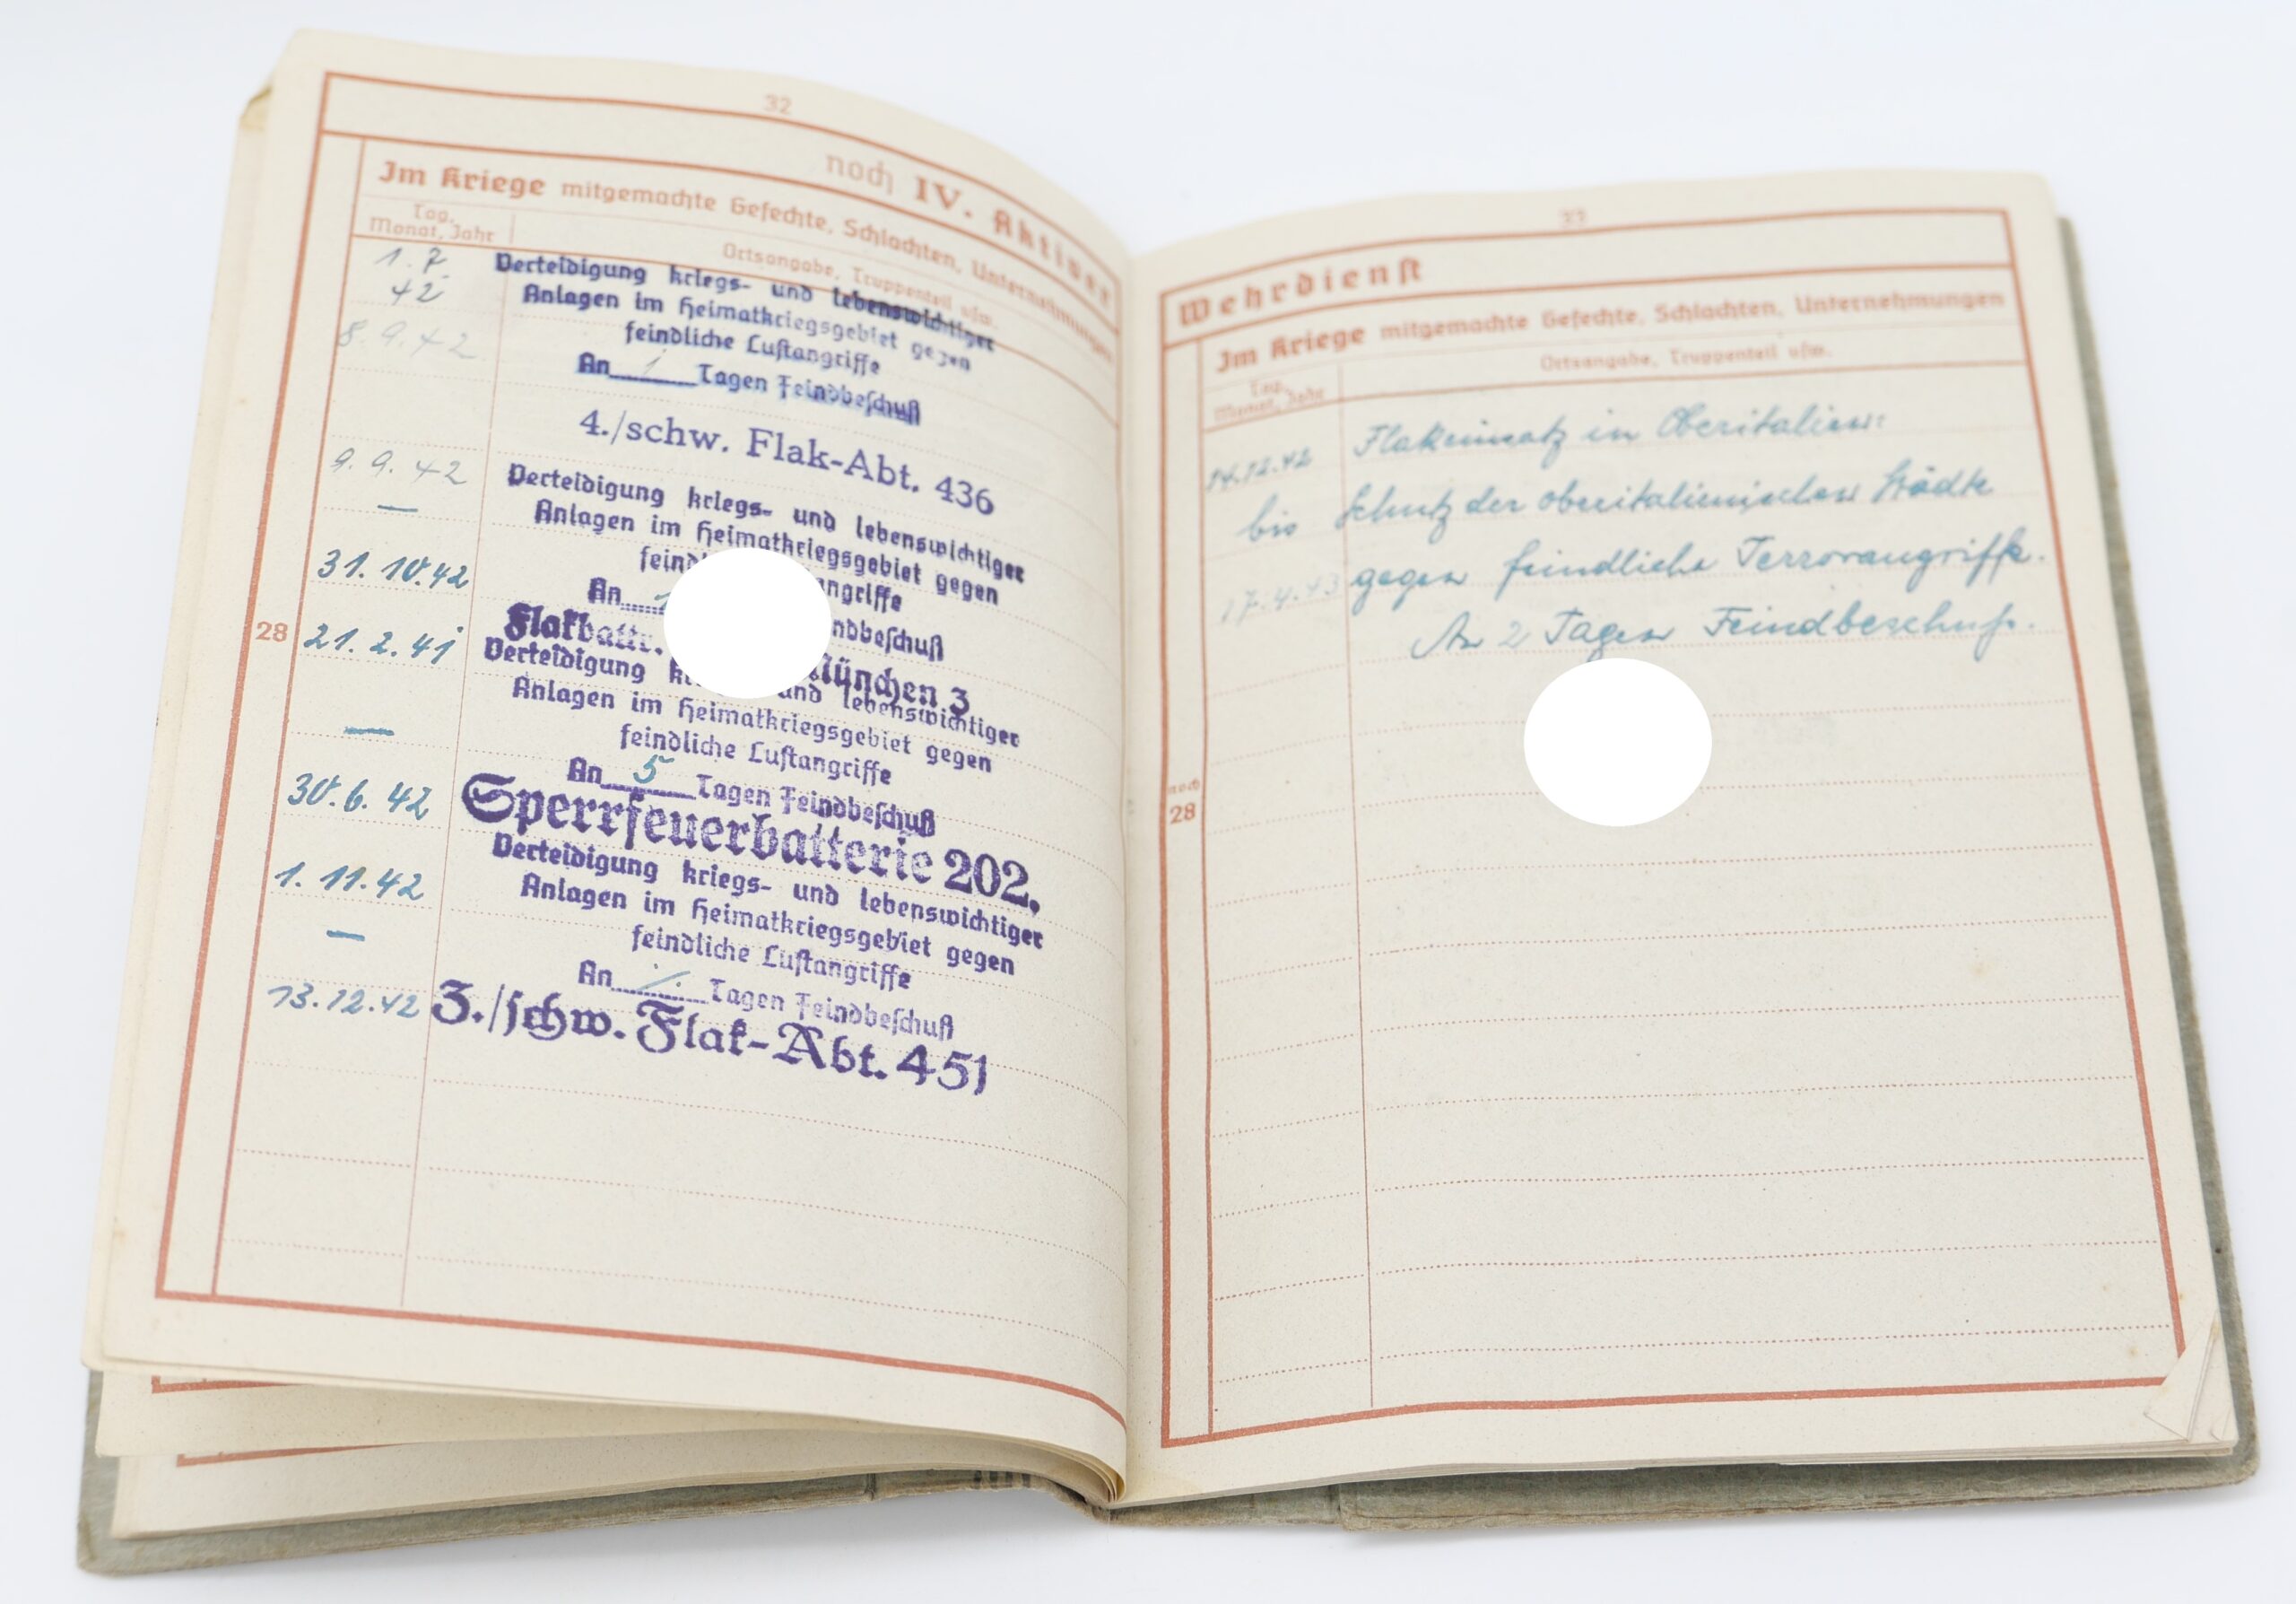 32
noch IV. Aktiver
Im Kriege mitgemachte Gefechte, Schlachten, Unternehmungen
Tag,
Monat, Jahr
Ortsangabe, Truppenteil usw.
1.7.
42
8.9.42
Verteidigung kriegs- und lebenswichtiger
Anlagen im Heimatkriegsgebiet gegen
feindliche Luftangriffe
An 1 Tagen Feindbeschuß
4./schw. Flak-Abt. 436
9.9.42
—
31.10.42
Verteidigung kriegs- und lebenswichtiger
Anlagen im Heimatkriegsgebiet gegen
An
Flakbattr. München 3
28
21.2.41
—
30.6.42
Verteidigung und lebenswichtiger
Anlagen im Heimatkriegsgebiet gegen
feindliche Luftangriffe
An 5 Tagen Feindbeschuß
Sperrfeuerbatterie 202.
1.11.42
—
13.12.42
Verteidigung kriegs- und lebenswichtiger
Anlagen im Heimatkriegsgebiet gegen
feindliche Luftangriffe
An Tagen Feindbeschuß
3./schw. Flak-Abt. 451
33
Wehrdienst
Im Kriege mitgemachte Gefechte, Schlachten, Unternehmungen
Tag,
Monat, Jahr
Ortsangabe, Truppenteil usw.
14.12.42 Flakeinsatz in Oberitalien:
bis Schutz der oberitalienischen Städte
17.4.43 gegen feindliche Terrorangriffe.
An 2 Tagen Feindbeschuß.
noch
28